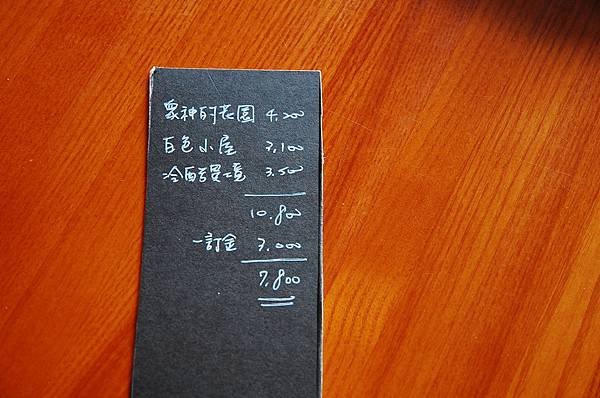 眾神的花園 4.200
百色小屋 3.100
冷酷異境 3.500
10.800
-訂金 3.000
7.800